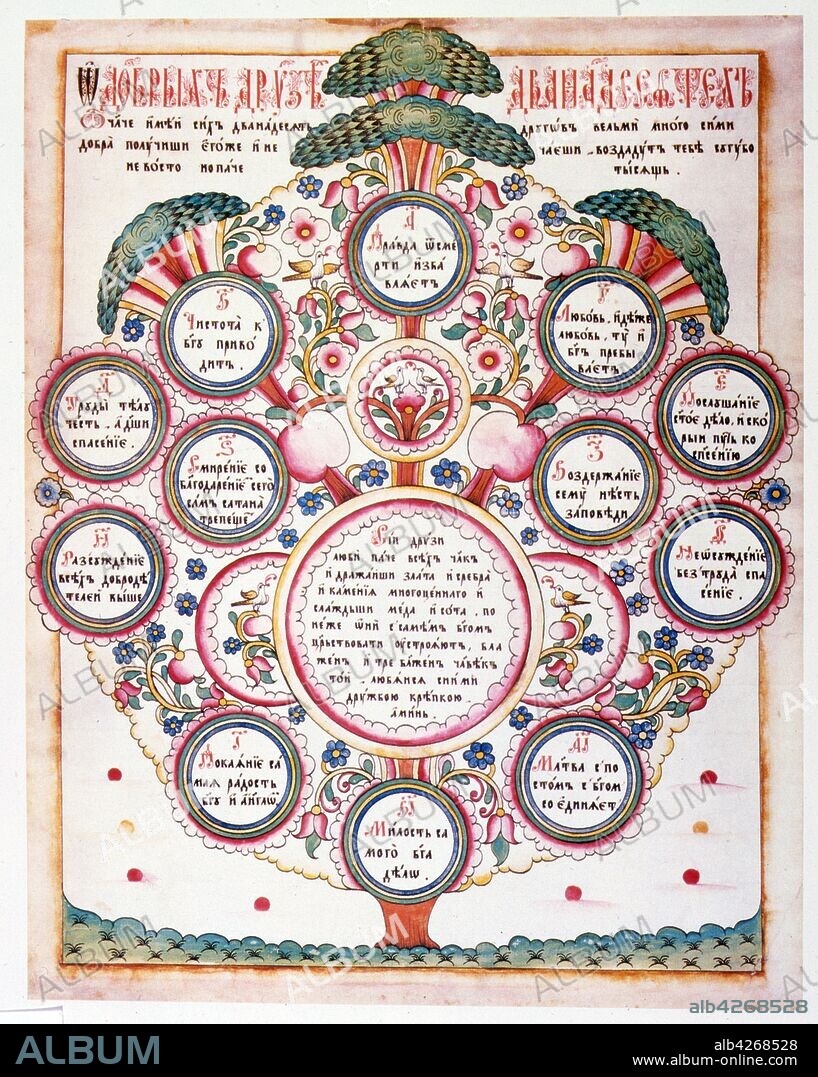 Ѿ ДОБРЫХЪ ДРУЗѢХЪ ДВАНАДЕСЯТЕХЪ
Аще имѣй сихъ дванадесять друговъ вельми много сими
добра получиши егоже и не чаеши . воздадутъ тебѣ сугубо
не во сто но паче тысящь .
А҃
Правда ѿ сме
рти избав
ляетъ
Б҃
Чистота к
бг҃у приво
дитъ .
Г҃
Любовь . идѣже
любовь . ту и
бг҃ъ пребы
ваетъ
Д҃
Труды тѣлу
честь . а дш҃и
спасенїе .
Е҃
Послушанїе
ст҃ое дѣло , и ско
рый путь ко
сп҃сенїю
Ѕ҃
Смиренїе со
благодаренїе сего
самъ сатана
трепеще
З҃
Воздержанїе
сему нѣсть
заповѣди
И҃
Разсужденїе
всѣхъ добродѣ
телей выше .
Ѳ҃
Неѡсужденїе
без труда спа
сенїе .
Сїи друзи
люби паче всѣхъ чл҃къ
и дражайши злата и сребра
и каменїя многоценнаго и
слаждьши меда и сота . по
неже ѡни с самѣмъ бг҃омъ
цр҃ьствовати ꙋстрояютъ , бла
женъ и треблаженъ чл҃вѣкъ
той . любяися сими
дружбою крѣпкою .
аминь .
І҃
Покаянїе са
мая радость
бг҃у и анг҃лѡмъ
АІ҃
Мл҃тва с по
стомъ с бг҃омъ
соединяетъ
ВІ҃
Милость са
мого бг҃а
дѣло .
ALBUM
alb4268528
ALBUM
alb4268528
www.album-online.com